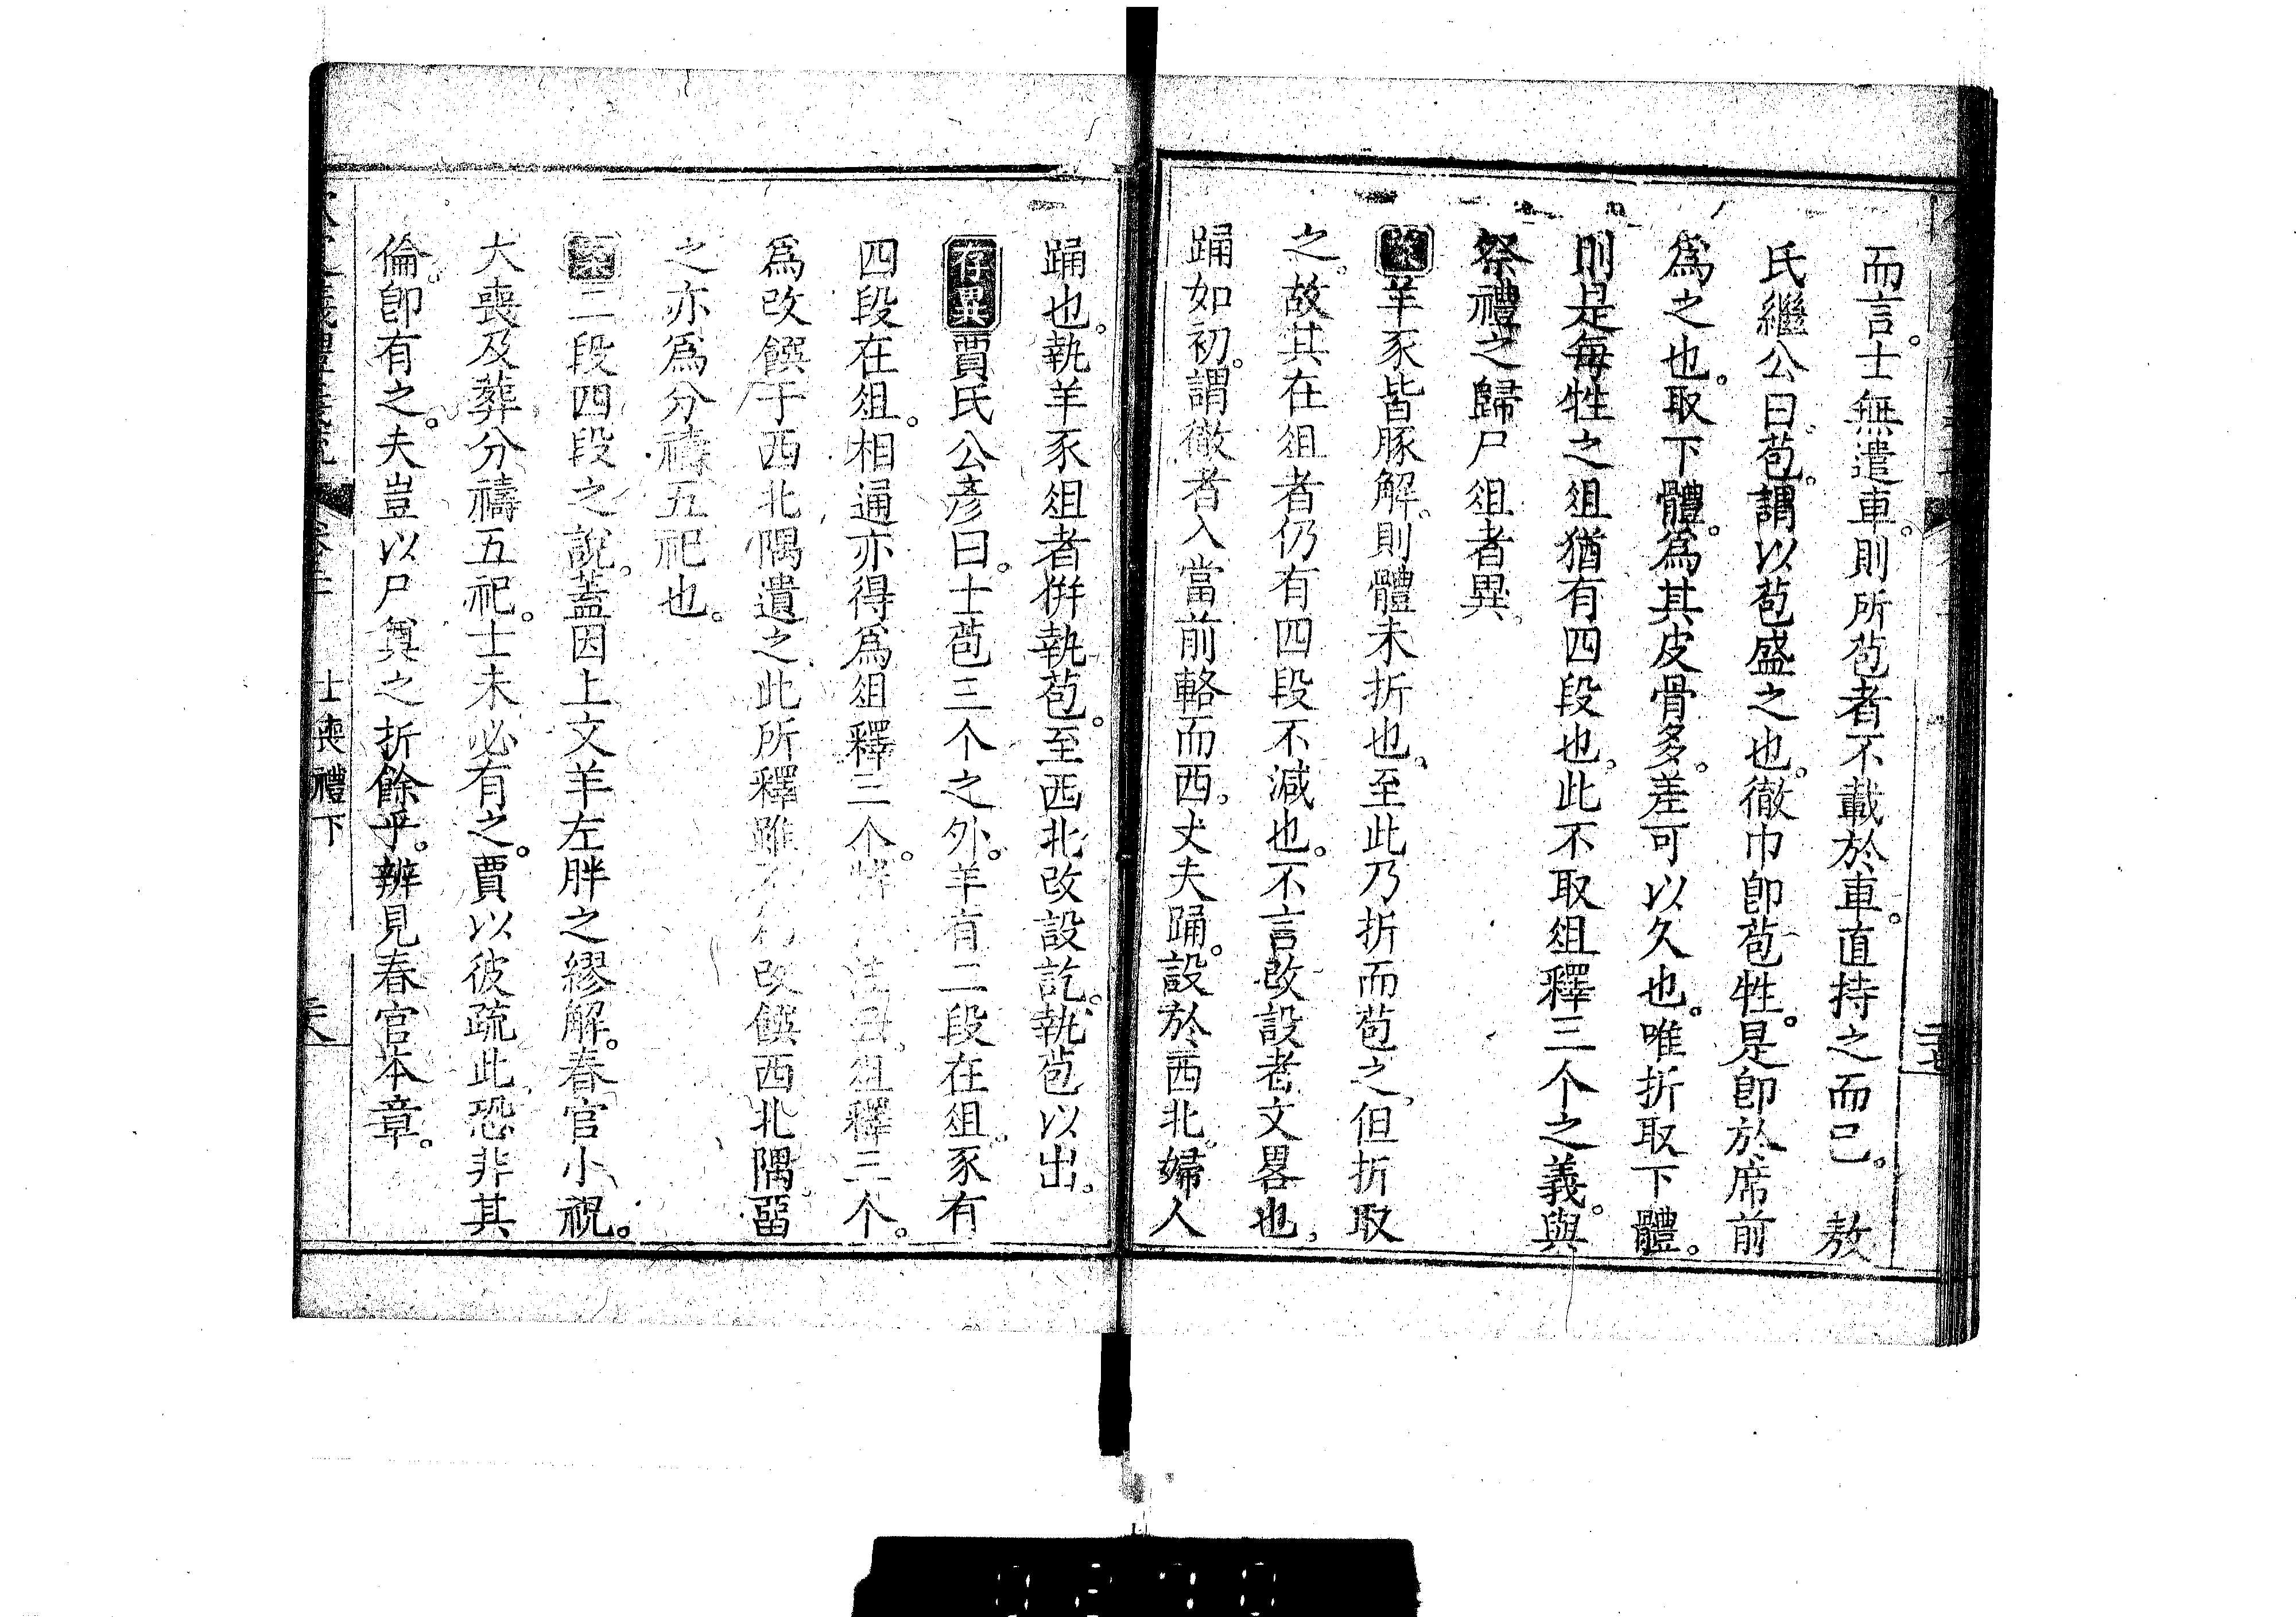 而言。士無遣車。則所苞者不載於車。直持之而已。　敖
氏繼公曰。苞。謂以苞盛之也。徹巾卽苞牲。是卽於席前
爲之也。取下體。爲其皮骨多。差可以久也。唯折取下體。
則是每牲之俎猶有四段也。此不取俎釋三个之義。與
祭禮之歸尸俎者異。
案羊豕皆豚解。則體未折也。至此乃折而苞之。但折取
之。故其在俎者仍有四段不減也。不言改設者。文畧也。
踊如初。謂徹者入當前輅而西。丈夫踊。設於西北。婦人
踊也。執羊豕俎者倂執苞。至西北改設訖。執苞以出。
存異賈氏公彥曰。士苞三个之外。羊有二段在俎。豕有
四段在俎。相通亦得爲俎釋三个。俎釋三个。
爲改饌于西北隅遺之。此所釋雖改饌西北隅。畱
之亦爲分禱五祀也。
案二段四段之說。蓋因上文羊左胖之繆解。春官小祝。
大喪及葬分禱五祀。士未必有之。賈以彼疏此。恐非其
倫。卽有之。夫豈以尸奠之折餘乎。辨見春官本章。
士喪禮下